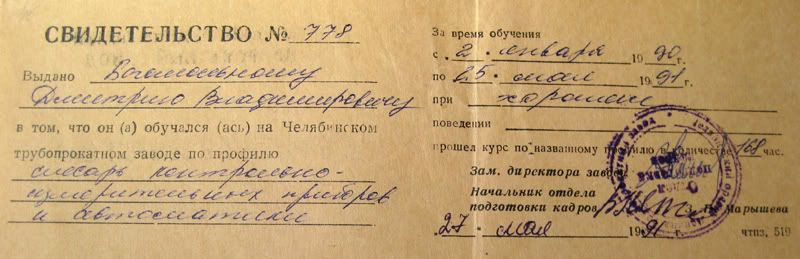 СВИДЕТЕЛЬСТВО № 778
Выдано Богомольному
Дмитрию Владимировичу
в том, что он (а) обучался (ась) на Челябинском
трубопрокатном заводе по профилю
слесарь контрольно-
измерительных приборов
и автоматики
За время обучения
с „2„ января 1990 г.
по „25„ мая 1991 г.
при хорошем
поведении
прошел курс по названному профилю в количестве 168 час.
Зам. директора завода
Начальник отдела
подготовки кадров Марышева
„27„ мая 1991 г.
чтпз, 519